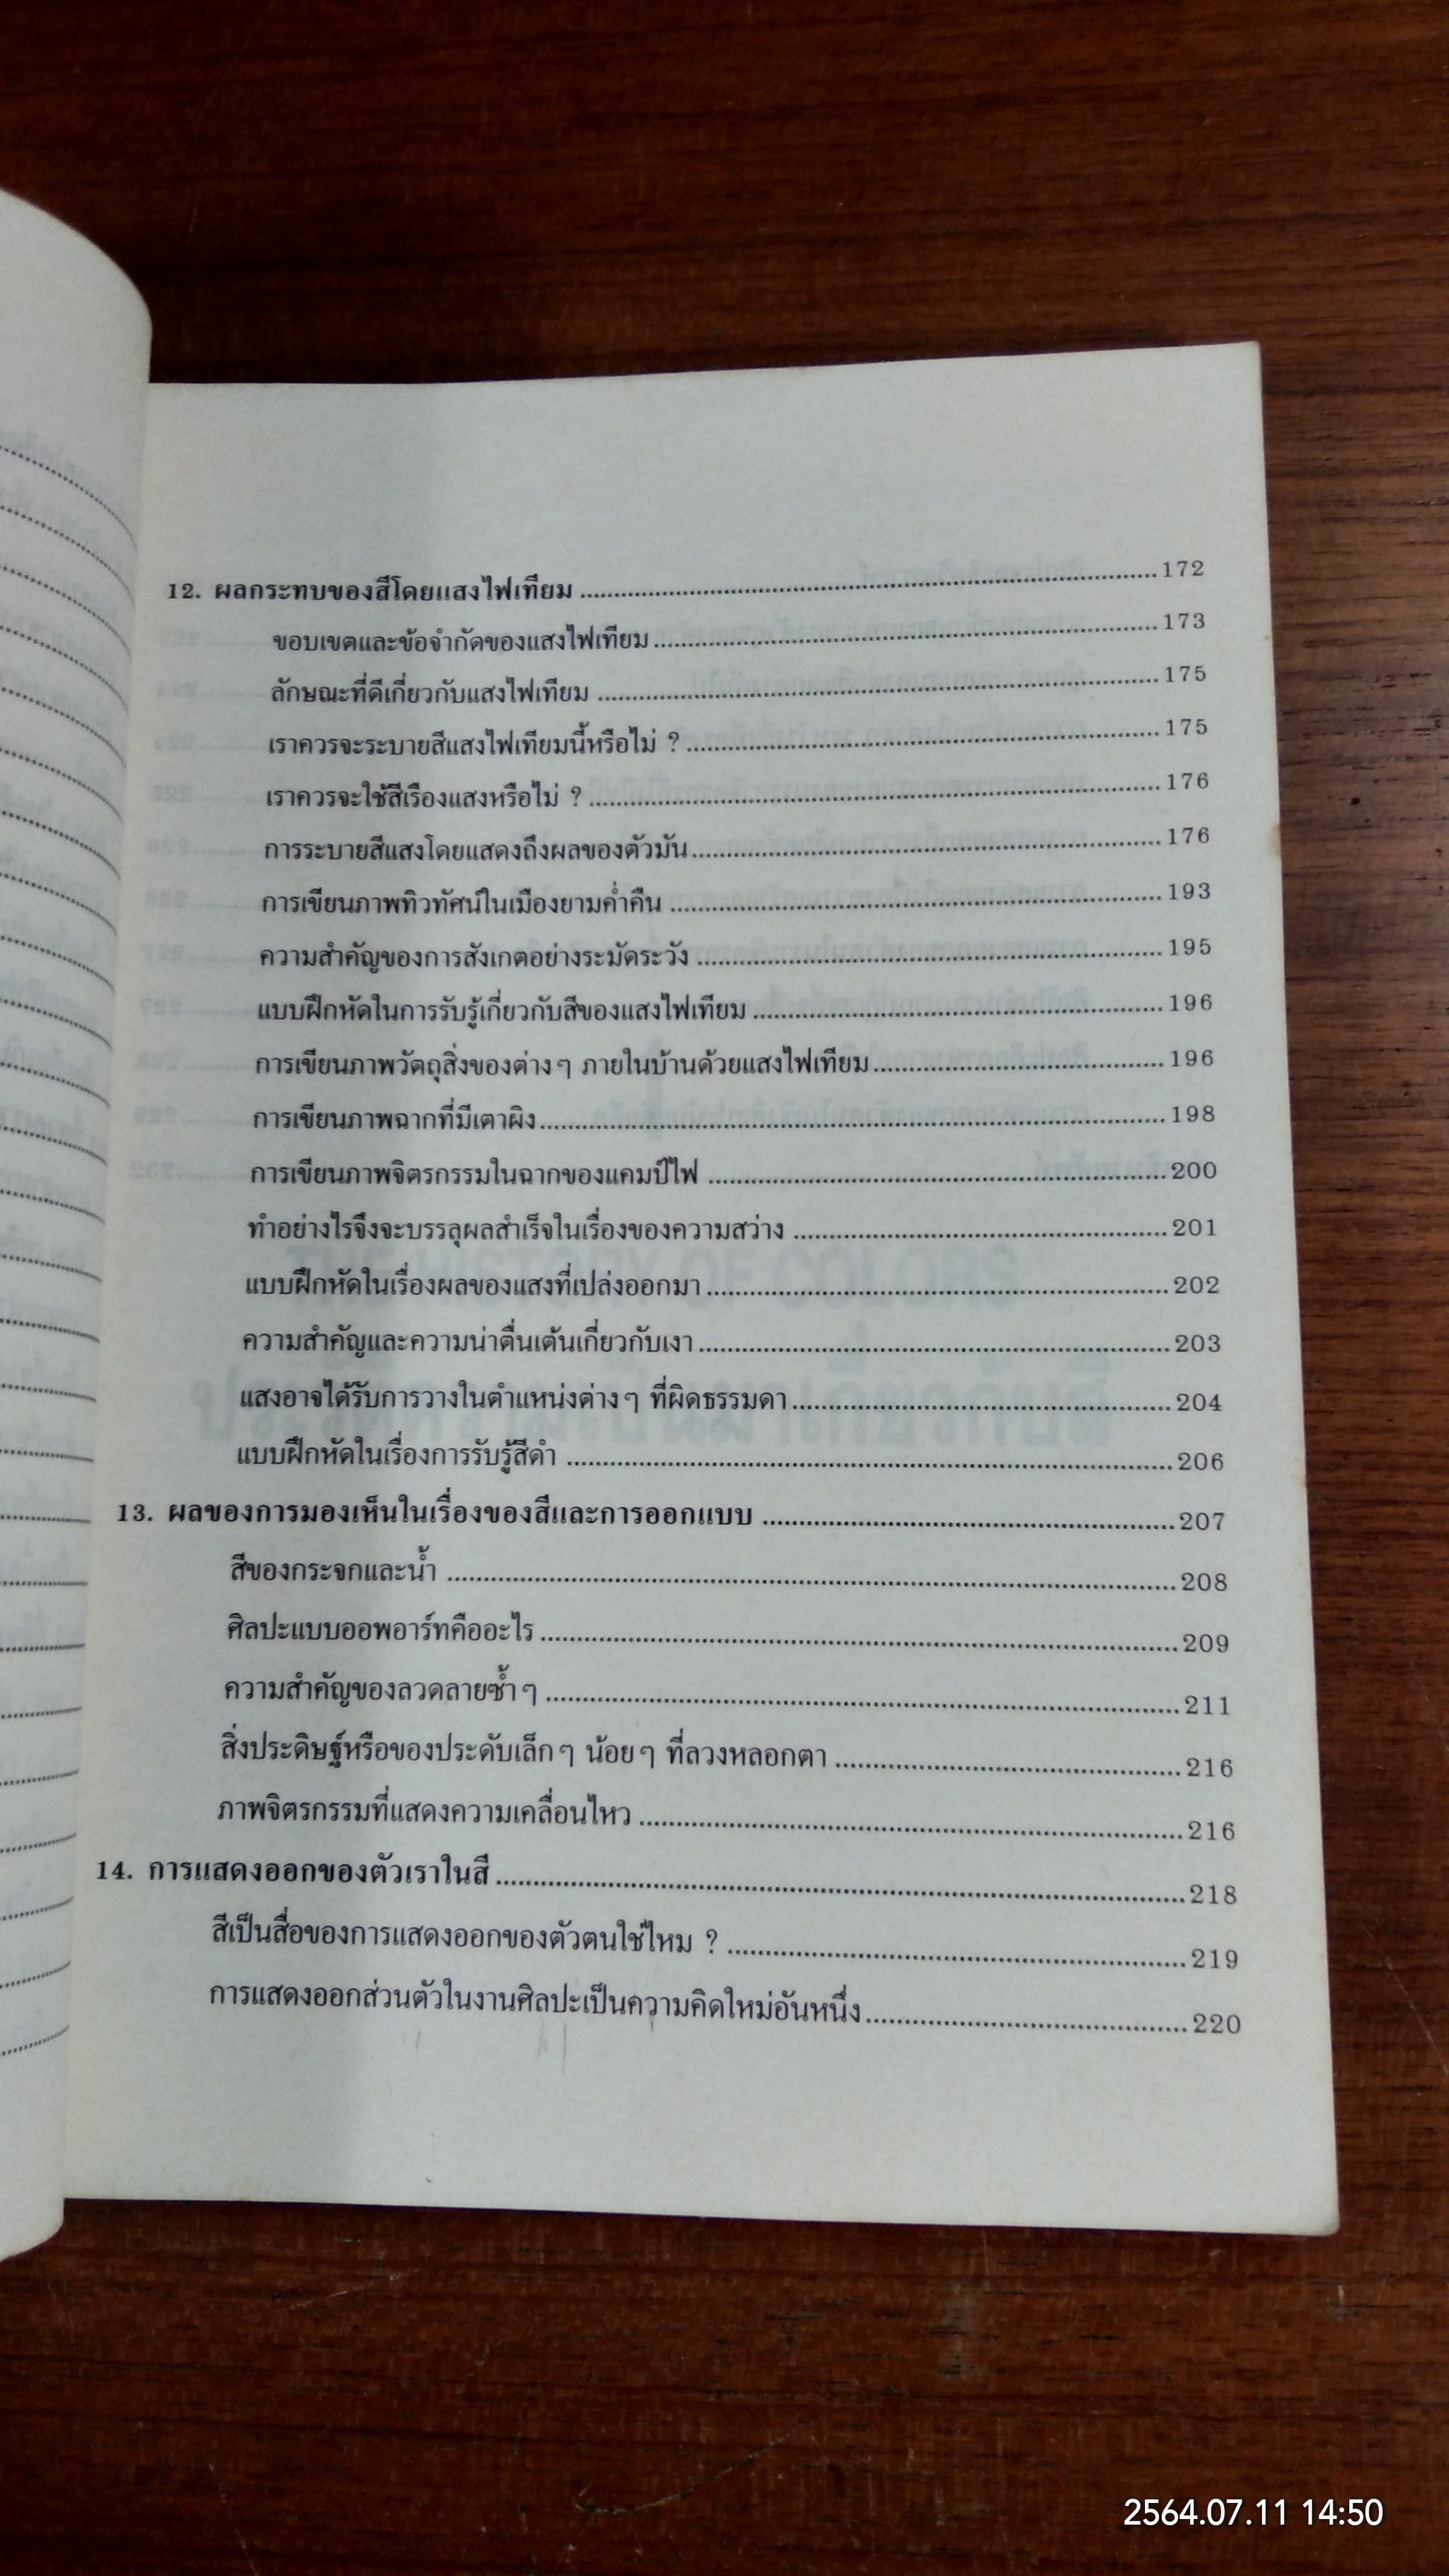 12. ผลกระทบของสีโดยแสงไฟเทียม ........ 172
ขอบเขตและข้อจำกัดของแสงไฟเทียม ........ 173
ลักษณะที่ดีเกี่ยวกับแสงไฟเทียม ........ 175
เราควรจะระบายสีแสงไฟเทียมนี้หรือไม่ ? ........ 175
เราควรจะใช้สีเรืองแสงหรือไม่ ? ........ 176
การระบายสีแสงโดยแสดงถึงผลของตัวมัน ........ 176
การเขียนภาพทิวทัศน์ในเมืองยามค่ำคืน ........ 193
ความสำคัญของการสังเกตอย่างระมัดระวัง ........ 195
แบบฝึกหัดในการรับรู้เกี่ยวกับสีของแสงไฟเทียม ........ 196
การเขียนภาพวัตถุสิ่งของต่างๆ ภายในบ้านด้วยแสงไฟเทียม ........ 196
การเขียนภาพฉากที่มีเตาผิง ........ 198
การเขียนภาพจิตรกรรมในฉากของแคมป์ไฟ ........ 200
ทำอย่างไรจึงจะบรรลุผลสำเร็จในเรื่องของความสว่าง ........ 201
แบบฝึกหัดในเรื่องผลของแสงที่เปล่งออกมา ........ 202
ความสำคัญและความน่าตื่นเต้นเกี่ยวกับเงา ........ 203
แสงอาจได้รับการวางในตำแหน่งต่างๆ ที่ผิดธรรมดา ........ 204
แบบฝึกหัดในเรื่องการรับรู้สีดำ ........ 206
13. ผลของการมองเห็นในเรื่องของสีและการออกแบบ ........ 207
สีของกระจกและน้ำ ........ 208
ศิลปะแบบออพอาร์ทคืออะไร ........ 209
ความสำคัญของลวดลายซ้ำๆ ........ 211
สิ่งประดิษฐ์หรือของประดับเล็กๆ น้อยๆ ที่ลวงหลอกตา ........ 216
ภาพจิตรกรรมที่แสดงความเคลื่อนไหว ........ 216
14. การแสดงออกของตัวเราในสี ........ 218
สีเป็นสื่อของการแสดงออกของตัวตนใช่ไหม ? ........ 219
การแสดงออกส่วนตัวในงานศิลปะเป็นความคิดใหม่อันหนึ่ง ........ 220
2564.07.11 14:50